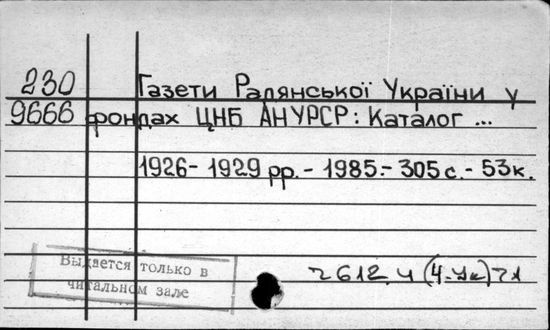 230 Газети Радянської України у
9666 фондах ЦНБ АНУРСР: Каталог ...
1926- 1929 рр. - 1985.- 305 с. - 53к.
Выдается только в
читальном зале
ч 612.ч (4-Ук) 71